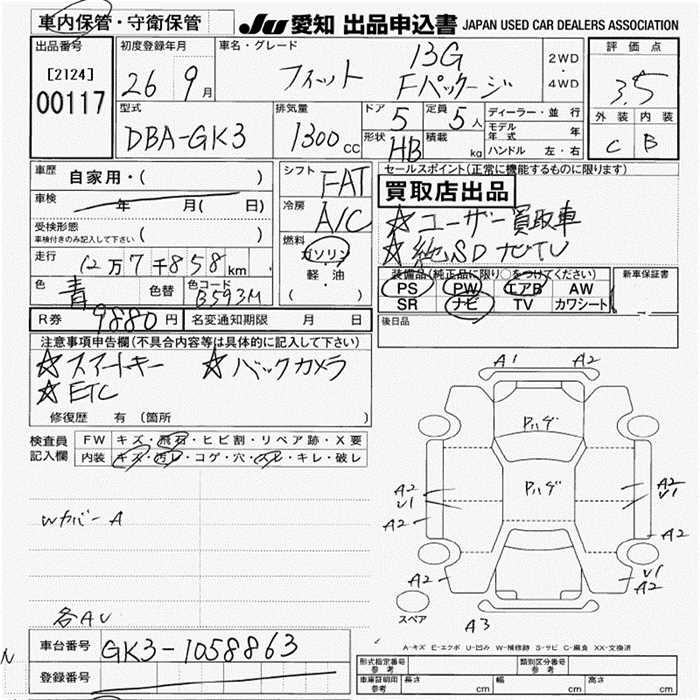 車内保管・守衛保管
JU 愛知 出品申込書 JAPAN USED CAR DEALERS ASSOCIATION
出品番号
[2124]
00117
初度登録年月
26 9月
車名・グレード
フィット
13G
Fパッケージ
2WD
・
4WD
評価点
3.5
外装 内装
C B
型式
DBA-GK3
排気量
1300cc
ドア 5
形状 HB
定員 5人
積載 kg
ディーラー・並行
モデル年式 年
ハンドル 左・右
車歴 自家用・( )
車検 年 月( 日)
受検形態
車検付きのみ記入して下さい ( )
走行 12万7千858km
色 青 色替 色コード B593M
R券 9880円 名変通知期限 月 日
シフト FAT
冷房 A/C
燃料
ガソリン
軽・油
( )
セールスポイント(正常に機能するものに限ります)
買取店出品
☆ユーザー買取車
☆純SDナビTV
装備品(純正品に限り○をつけてください)
PS PW エアB AW
SR ナビ TV カワシート
新車保証書
後日品
注意事項申告欄(不具合内容等は具体的に記入して下さい)
☆スマートキー ☆バックカメラ
☆ETC
修復歴 有 (箇所 )
検査員記入欄
FW キズ・飛石・ヒビ割・リペア跡・X要
内装 キズ・汚レ・コゲ・穴・スレ・キレ・破レ
Wカバー A
各AU
A1 A2
Pハゲ
Pハゲ
A2
U1
A2
A2
U1
A2
A2
U1
A2
A3
スペア
A-キズ E-エクボ U-凹み W-補修跡 S-サビ C-腐食 XX-交換済
車台番号 GK3-1058863
登録番号
形式指定番号 参考 類別区分番号 参考
車庫証明用 参考 長さ cm 幅 cm 高さ cm